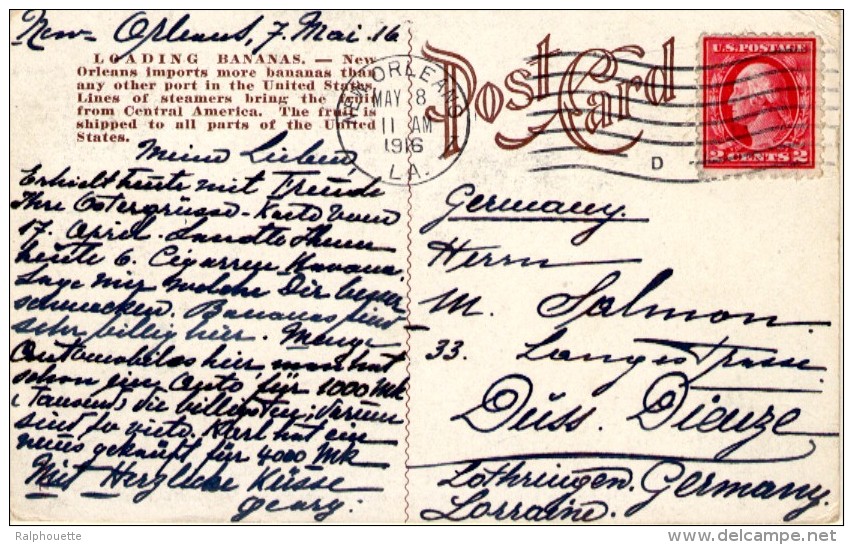 New Orleans, 7. Mai. 16
LOADING BANANAS. — New
Orleans imports more bananas than
any other port in the United States.
Lines of steamers bring the fruit
from Central America. The fruit is
shipped to all parts of the United
States.
Meine Lieben
Erhielt heute mit Freude
Ihre Ostergrüsse-Karte vom
17. April. Sandte Ihnen
heute 6. Cigarren Havana.
Sage mir welche Dir besser
schmecken. Bananas sind
sehr billig hier. Menge
Automobiles hier, man hat
schon ein Auto für 1000 Mk
(Tausend) die billigsten; darum
sind so viele. Karl hat ein
neues gekauft für 4000 Mk
Mit Herzliche Küsse
Post Card
NEW ORLEANS
MAY 8
11 AM
1916
LA.
D
U.S. POSTAGE
2 CENTS 2
Germany.
Herrn
M. Salmon.
33. Langestrasse.
Düss. Dieuze
Lothringen. Germany.
Lorraine.
Ralphouette
delcampe.net